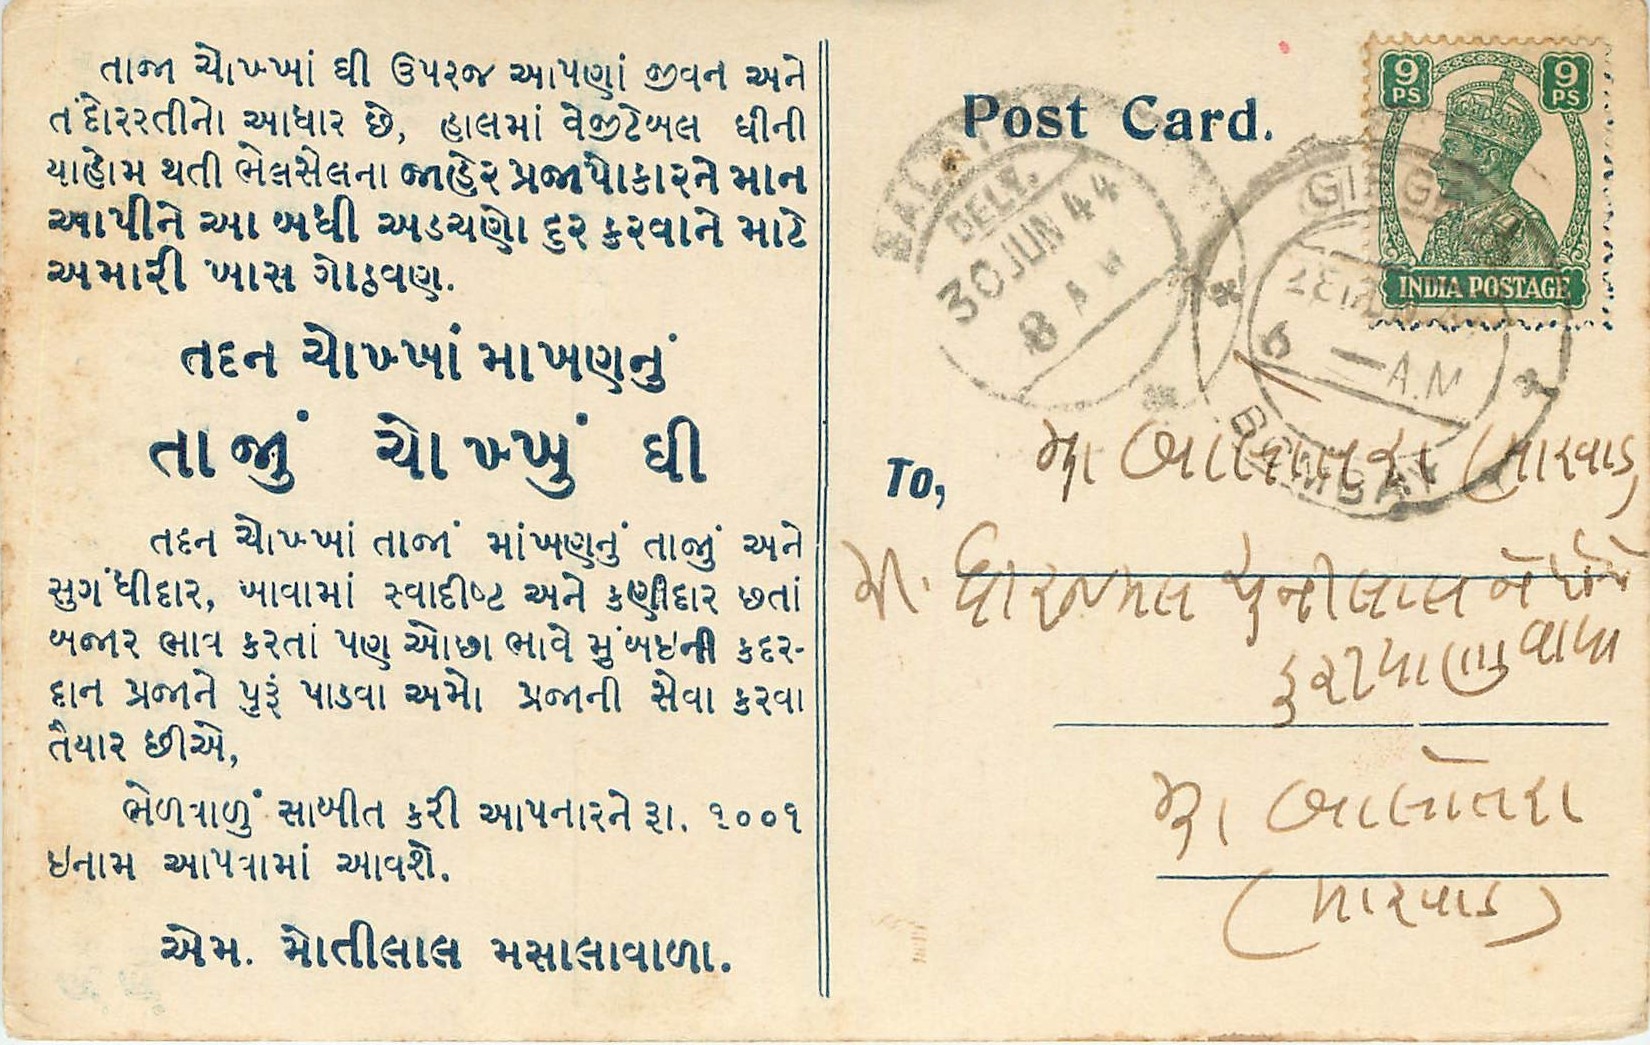 તાજા ચોખ્ખાં ઘી ઉપરજ આપણાં જીવન અને
તંદોરરતીનો આધાર છે, હાલમાં વેજીટેબલ ઘીની
યાહોમ થતી ભેલસેલના જાહેર પ્રજાપોકારને માન
આપીને આ બધી અડચણો દુર કરવાને માટે
અમારી ખાસ ગોઠવણ.
તદન ચોખ્ખાં માખણનું
તાજું ચોખ્ખું ઘી
તદન ચોખ્ખાં તાજાં માંખણનું તાજું અને
સુગંધીદાર, ખાવામાં સ્વાદીષ્ટ અને કણીદાર છતાં
બજાર ભાવ કરતાં પણ ઓછા ભાવે મુંબઇની કદર-
દાન પ્રજાને પુરૂં પાડવા અમો પ્રજાની સેવા કરવા
તૈયાર છીએ,
ભેળવાળું સાબીત કરી આપનારને રૂા. ૧૦૦૧
ઇનામ આપવામાં આવશે.
એમ. મોતીલાલ મસાલાવાળા.
Post Card.
9 PS 9 PS
INDIA POSTAGE
DELY.
30 JUN 44
8 A M
6 A.M
BOMBAY
To,
મારવાડ
ચુનીલાલ
બાલોતરા
(મારવાડ)